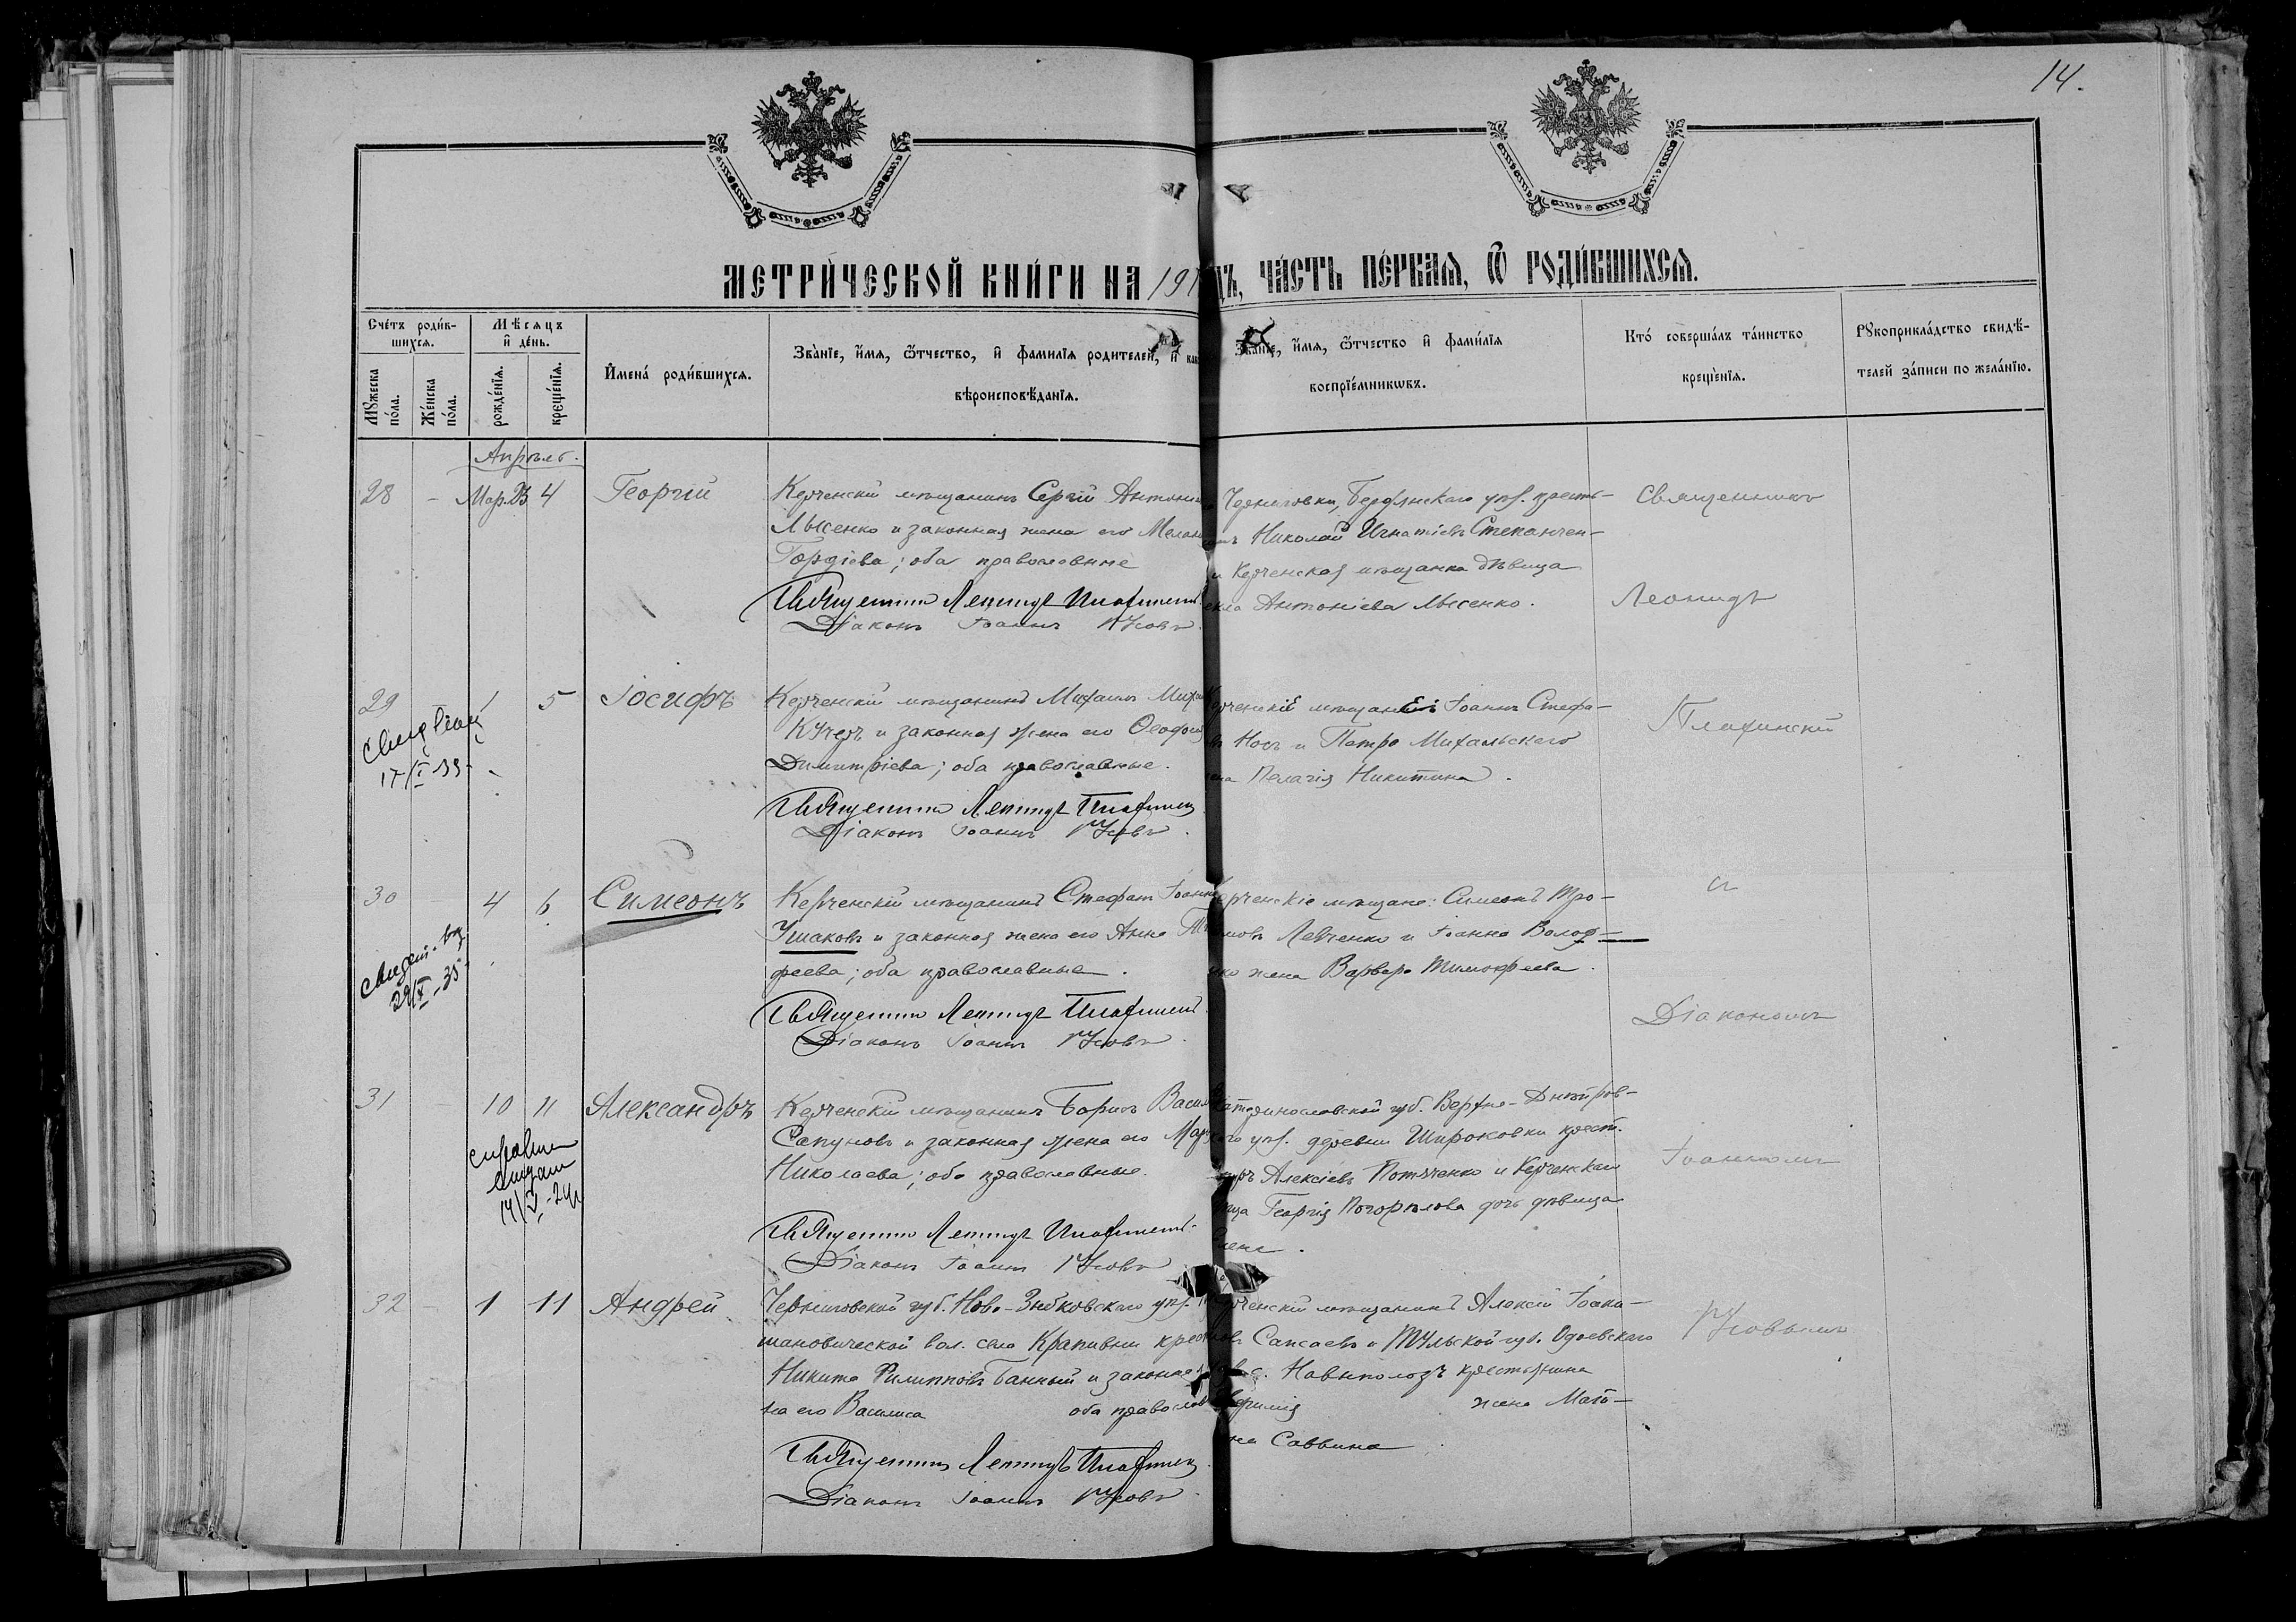 14.
МЕТРИ́ЧЕСКОЙ КНИ́ГИ НА 191 ДЪ, ЧА́СТЬ ПЕ́РВАЯ, Ѿ РОДИ́ВШИХСЯ.
Сче́тъ роди́в-
шихся.
Му́жеска по́ла.
Же́нска по́ла.
Мѣ́сяцъ
и҆ де́нь.
рожде́нїя.
креще́нїя.
И҆мена́ роди́вшихся.
Зва́нїе, и҆́мя, ѻ҆́тчество, и҆ фами́лїя роди́телей, и҆ как
вѣроисповѣ́данїя.
Зва́нїе, и҆́мя, ѻ҆́тчество и҆ фами́лїя
воспрїе́мникѡвъ.
Кто́ соверша́лъ та́инство
креще́нїя.
Рꙋкоприкла́дство свидѣ́-
телей за́писи по жела́нїю.
Апрѣль.
28 - Мар. 23 4 Георгій
Керченскій мѣщанинъ Сергій Антоні
Лысенко и законная жена его Мелан
Гордіева; оба православные
Священникъ Леонидъ Плафинскі
Діаконъ Іоаннъ Усовъ
Черниговки, Бердянскаго уѣз. кресть-
Николай Игнатіевъ Степанчен-
и Керченская мѣщанка дѣвица
Антоніева Лысенко.
Священникъ
Леонидъ
29 1 5 Іосифъ
17/I 33
Керченскій мѣщанинъ Михаилъ Миха
Кучеръ и законная жена его Ѳеодосі
Димитріева; оба православные.
Священникъ Леонидъ Плафинск
Діаконъ Іоаннъ Усовъ.
Керченскіе мѣщане Іоаннъ Стефа-
въ Носъ и Петра Михальскаго
жена Пелагія Никитина.
Плафинскій
30 4 6 Симеонъ
29/X-35
Керченскій мѣщанинъ Стефанъ Іоанно
Ушаковъ и законная жена его Анна Ти
феева; оба православные.
Священникъ Леонидъ Плафинскі
Діаконъ Іоаннъ Усовъ.
Керченскіе мѣщане: Симеонъ Тро-
мовъ Левченко и Іоанна Волод-
ко жена Варвара Тимофеева.
съ
Діакономъ
31 - 10 11 Александръ
14/V-24
Керченскій мѣщанинъ Борисъ Васил
Сапуновъ и законная жена его Мар
Николаева; оба православные.
Священникъ Леонидъ Плафинскі
Діаконъ Іоаннъ Усовъ
Екатеринославской губ. Верхне-Днѣпров-
скаго уѣз. деревни Широковки крест.
Алексіевъ Потяченко и Керченскаго
Георгія Погорѣлова дочь дѣвица
Елена.
Іоанномъ
32 - 1 11 Андрей
Черниговской губ. Ново-Зыбковскаго уѣз.
шановической вол. села Крапивни крест
Никита Филипповъ Банный и законная
на его Василиса оба православ
Священникъ Леонидъ Плафинск
Діаконъ Іоаннъ Усовъ.
Керченскій мѣщанинъ Алексій Іоаки-
мовъ Сапсаевъ и Тульской губ. Одоевскаго
с. Навыполозъ крестьянина
жена Матро-
на Саввина.
Усовымъ